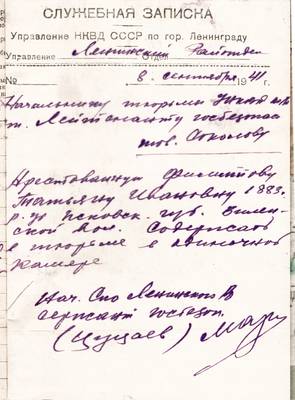 СЛУЖЕБНАЯ ЗАПИСКА
Управление НКВД СССР по гор. Ленинграду
Управление Ленинский Райотдел Отдел
№ 8 сентября 41
Начальнику тюрьмы
т. Лейтенанту госбезоп
тов. Соколову
Арестованную Филиппову
Татьяну Ивановну 1883
р. ур Псковск. губ.
Содержать
в тюрьме в одиночной
камере
Нач. Спо Ленинского
сержант госбезоп.